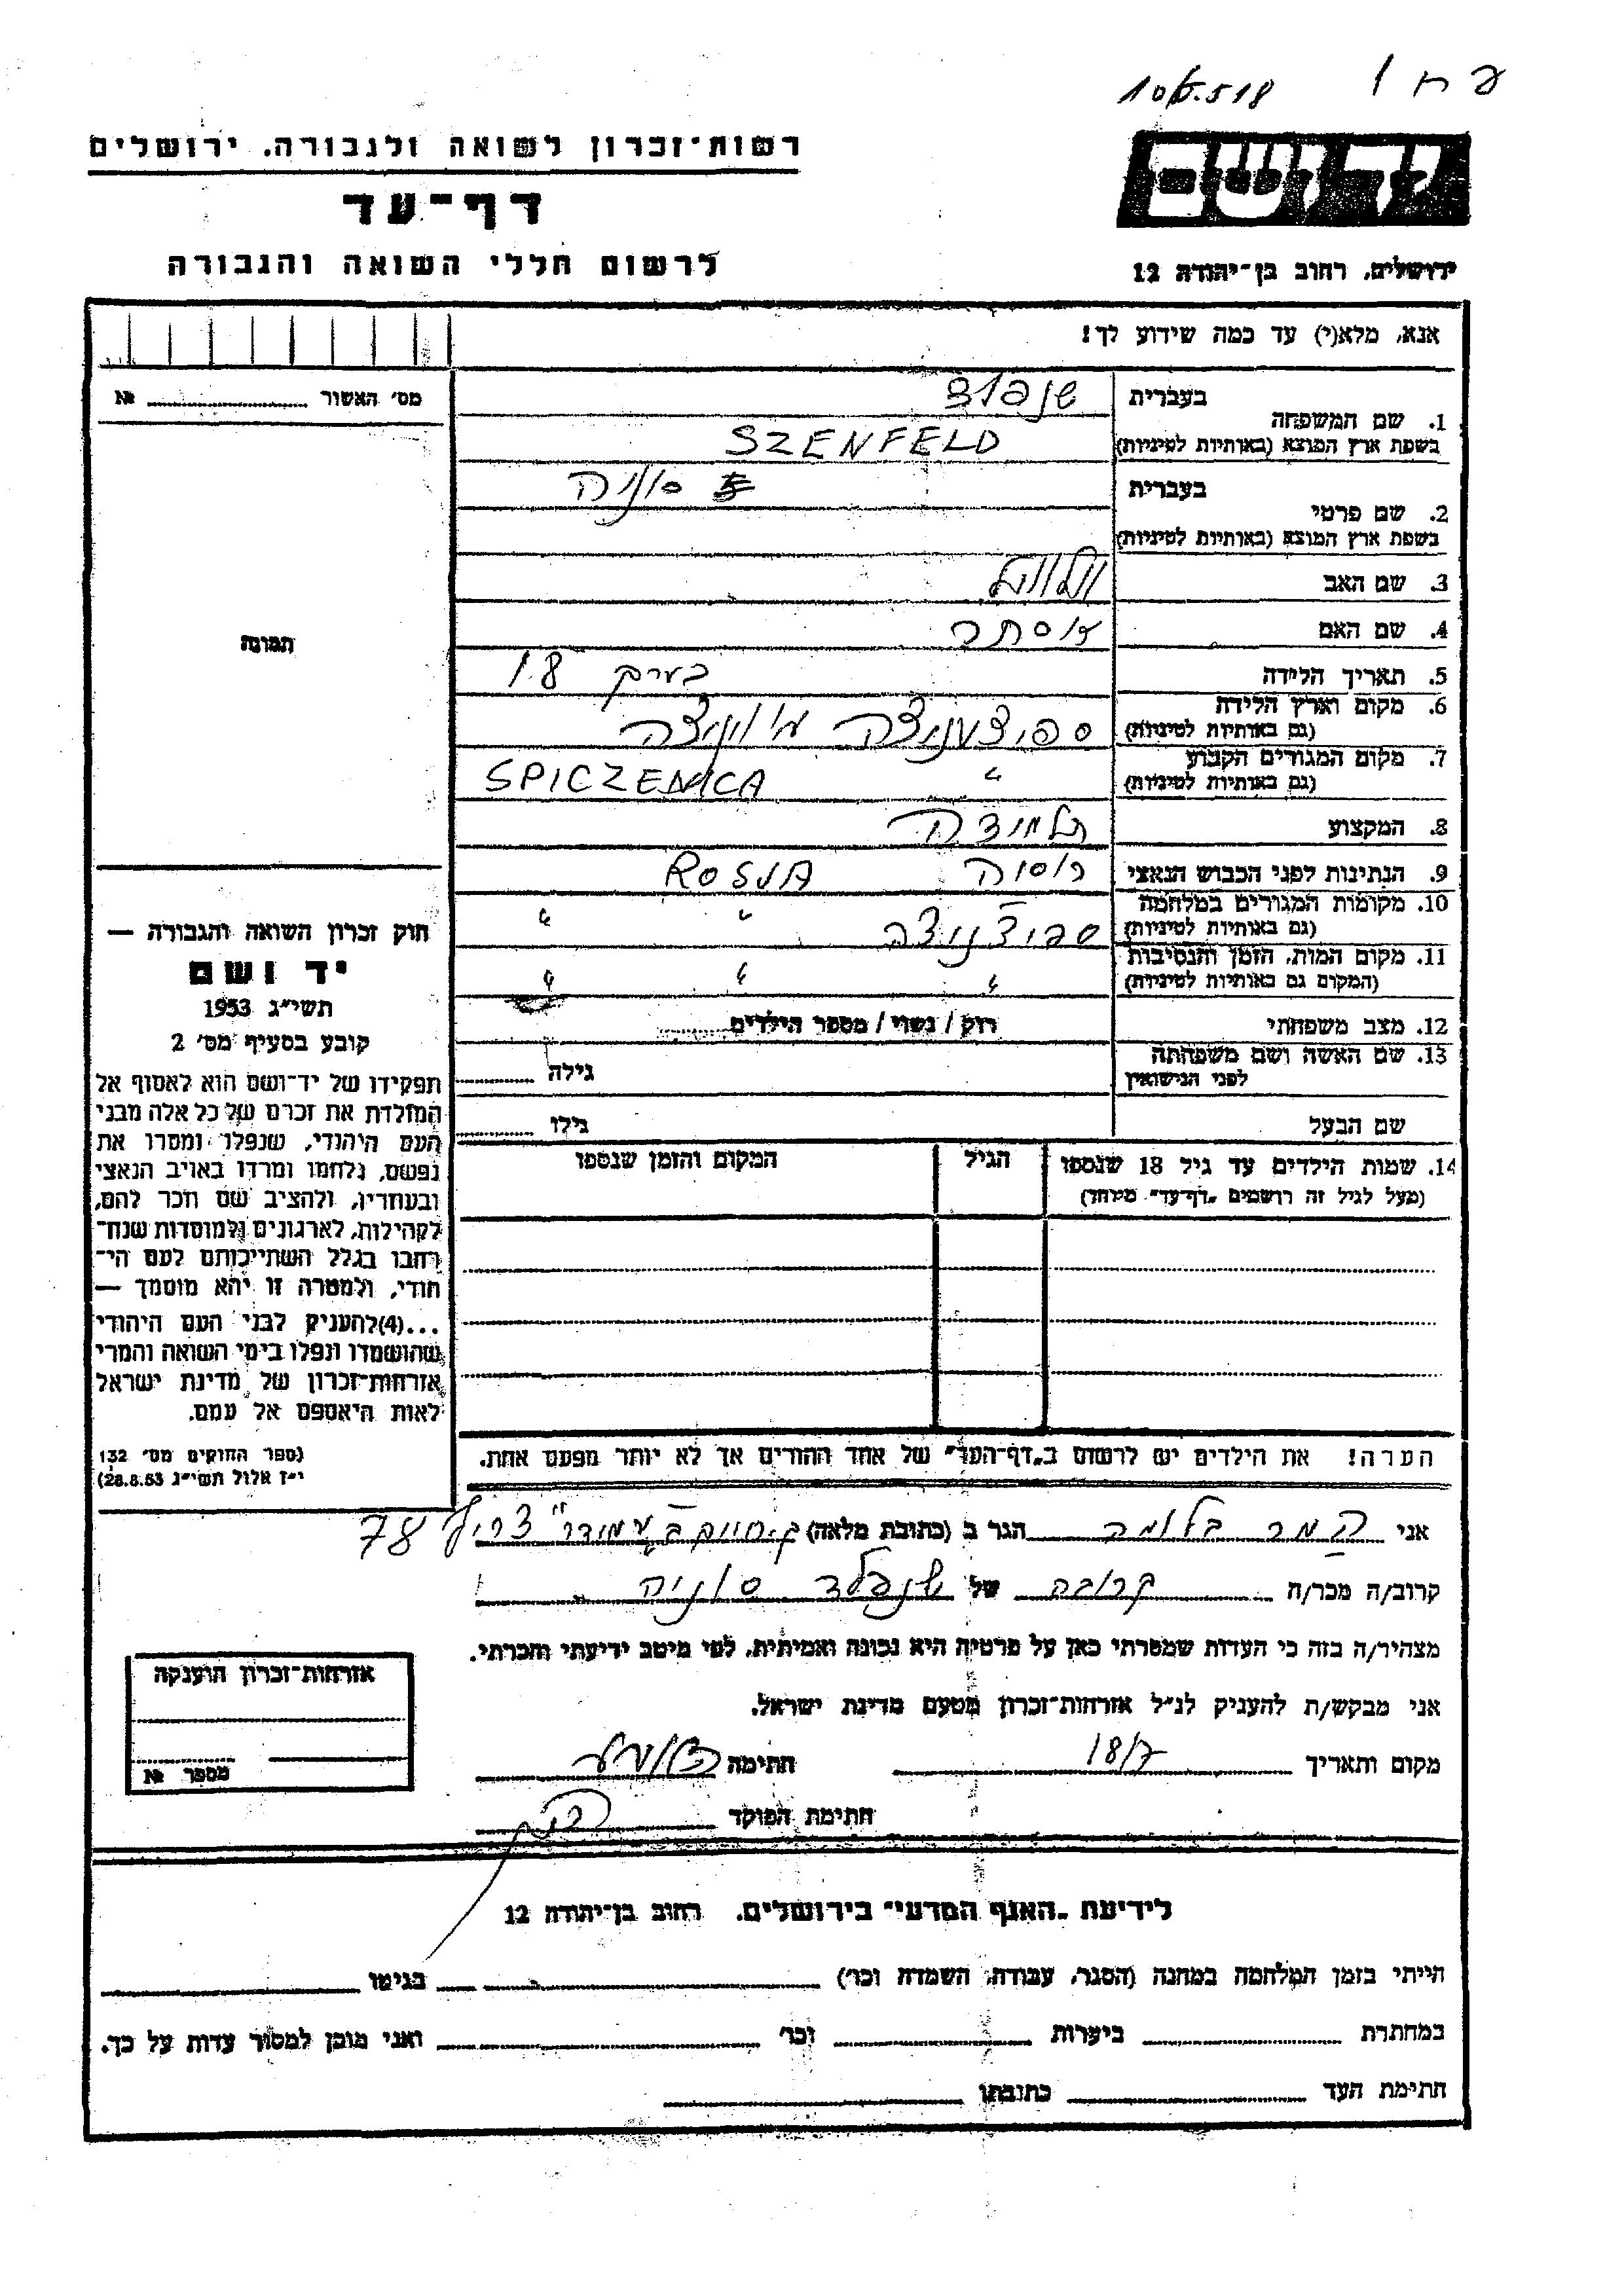 518
יד ושם
רשות־זכרון לשואה ולגבורה. ירושלים
דף־עד
לרשום חללי השואה והגבורה
ירושלים, רחוב בן־יהודה 12
אנא, מלא(י) עד כמה שידוע לך!
מס׳ האשור № 
1. שם המשפחה
בעברית שנפלד
בשפת ארץ המוצא (באותיות לטיניות) SZENFELD
2. שם פרטי
בעברית סוניה
בשפת ארץ המוצא (באותיות לטיניות)
3. שם האב וולוול
4. שם האם אסתר
5. תאריך הלידה בערך 18
6. מקום וארץ הלידה
(גם באותיות לטיניות) ספיצעניצה
7. מקום המגורים הקבוע
(גם באותיות לטיניות) " SPICZENICA
8. המקצוע תלמידה
9. הנתינות לפני הכבוש הנאצי רוסיה ROSJA
10. מקומות המגורים במלחמה
(גם באותיות לטיניות) ספיצניצה " "
11. מקום המות, הזמן והנסיבות
(המקום גם באותיות לטיניות) " " "
12. מצב משפחתי רוק / נשוי / מספר הילדים
13. שם האשה ושם משפחתה
לפני הנישואין גילה
שם הבעל גילו
תמונה
חוק זכרון השואה והגבורה —
יד ושם
תשי״ג 1953
קובע בסעיף מס׳ 2
תפקידו של יד־ושם הוא לאסוף אל
המולדת את זכרם של כל אלה מבני
העם היהודי, שנפלו ומסרו את
נפשם, נלחמו ומרדו באויב הנאצי
ובעוזריו, ולהציב שם וזכר להם,
לקהילות, לארגונים ולמוסדות שנח־
רבו בגלל השתייכותם לעם הי־
הודי, ולמטרה זו יהא מוסמך —
...(4) להעניק לבני העם היהודי
שהושמדו ונפלו בימי השואה והמרי
אזרחות־זכרון של מדינת ישראל
לאות היאספם אל עמם.
(ספר החוקים מס׳ 132
י״ז אלול תשי״ג 28.8.53)
14. שמות הילדים עד גיל 18 שנספו הגיל המקום והזמן שנספו
(מעל לגיל זה רושמים „דף־עד״ מיוחד)
הערה! את הילדים יש לרשום ב„דף־העד״ של אחד ההורים אך לא יותר מפעם אחת.
אני המר בלומה הגר ב (כתובת מלאה) ק. חיים ב "עמידר" צריף 78
קרוב/ה מכר/ה קרובה של שנפלד סוניה
מצהיר/ה בזה כי העדות שמסרתי כאן על פרטיה היא נכונה ואמיתית, לפי מיטב ידיעתי והכרתי.
אני מבקש/ת להעניק לנ״ל אזרחות־זכרון מטעם מדינת ישראל.
מקום ותאריך 18/7 חתימה
חתימת הפוקד
אזרחות־זכרון הוענקה
מספר №
לידיעת „האגף המדעי״ בירושלים. רחוב בן־יהודה 12
הייתי בזמן המלחמה במחנה (הסגר, עבודה, השמדה וכו׳) בגיטו
במחתרת ביערות וכו׳ ואני מוכן למסור עדות על כך.
חתימת העד כתובתו